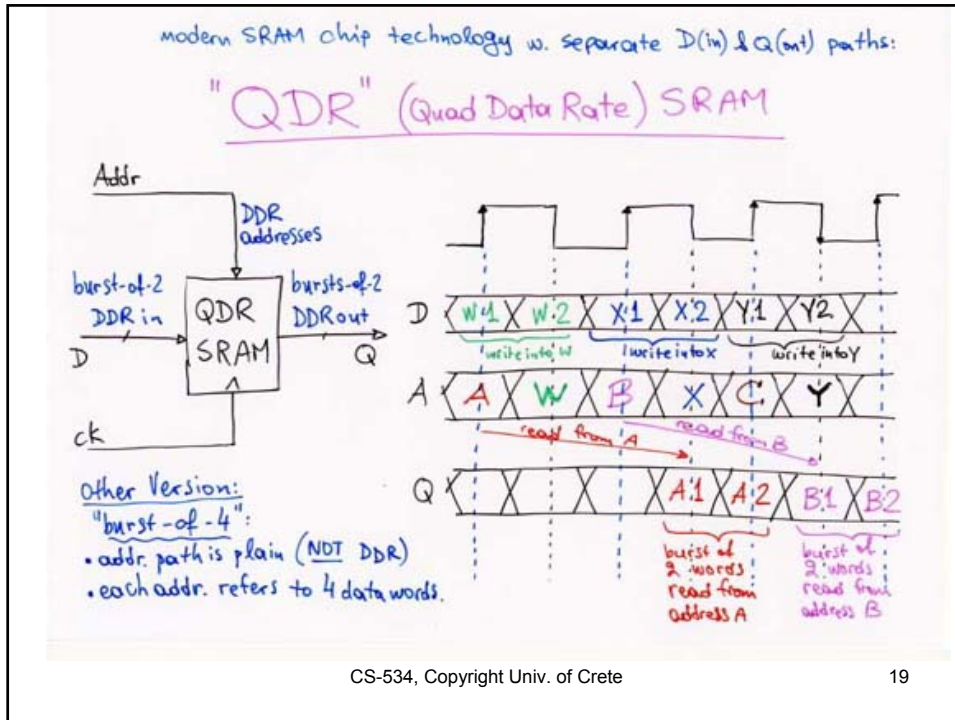 modern SRAM chip technology w. separate D(in) & Q(out) paths:
"QDR" (Quad Data Rate) SRAM
Addr
DDR
addresses
burst-of-2
DDR in
D
QDR
SRAM
bursts-of-2
DDR out
Q
ck
Other Version:
"burst-of-4":
• addr. path is plain (NOT DDR)
• each addr. refers to 4 data words.
D W.1 W.2 X.1 X.2 Y.1 Y.2
write into W write into X write into Y
A A W B X C Y
read from A read from B
Q A.1 A.2 B.1 B.2
burst of
2 words
read from
address A
burst of
2 words
read from
address B
CS-534, Copyright Univ. of Crete 19